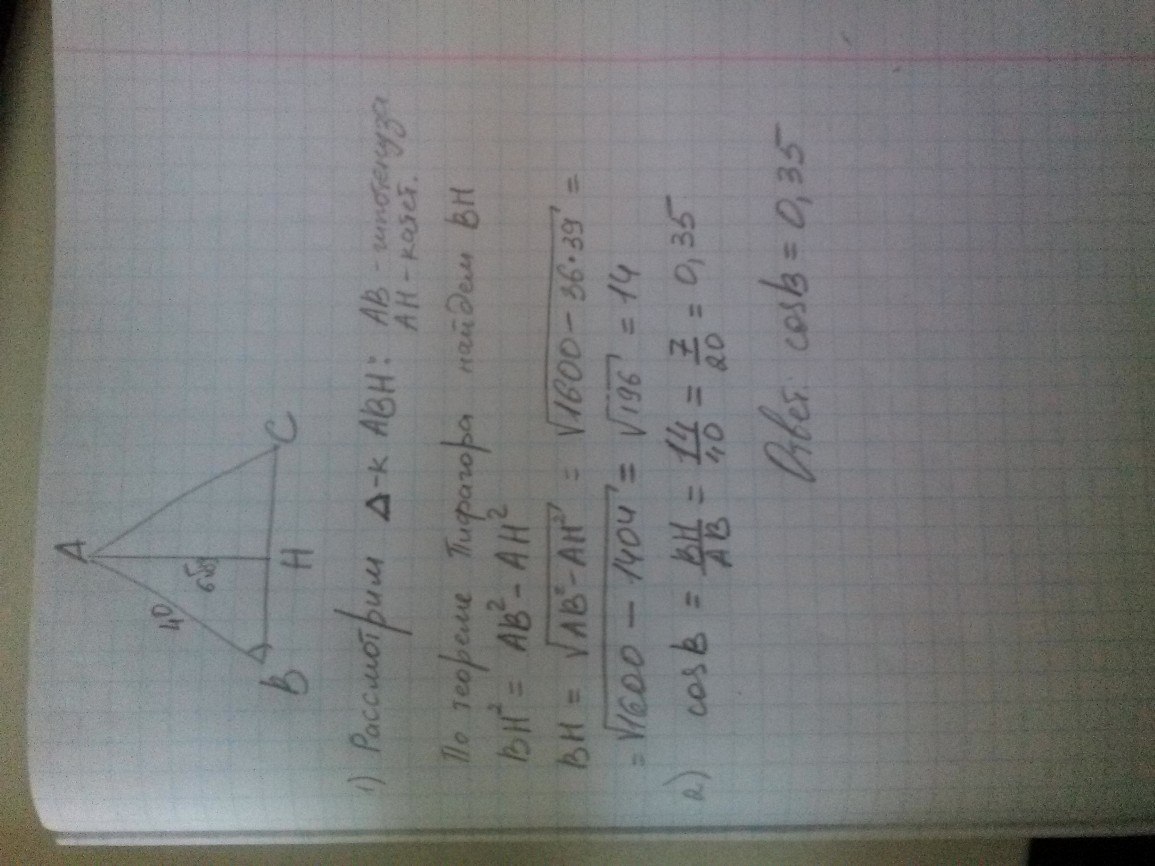 A
40
6√39
B
H
C
1) Рассмотрим Δ-к ABH: AB - гипотенуза
AH - катет.
По теореме Пифагора найдем BH
BH² = AB² - AH²
BH = √AB² - AH² = √1600 - 36·39 =
= √1600 - 1404 = √196 = 14
2) cosB = BH/AB = 14/40 = 7/20 = 0,35
Ответ: cosB = 0,35